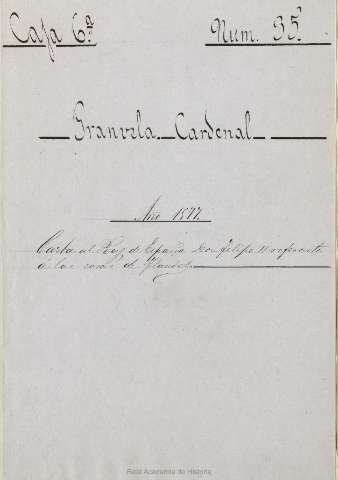 Caja 6ª
Num. 35.
Granvela. Cardenal
Año 1577.
Carta al Rey de España Don Felipe II referente
á las cosas de Flandes.
Real Academia de Historia